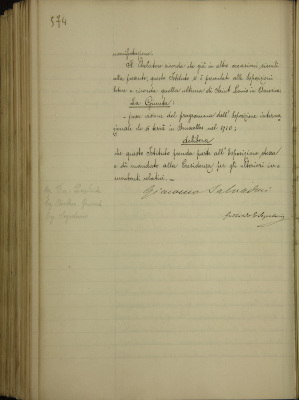 374
manifestazione.
Il Relatore ricorda che già in altre occasioni, simili
alla presente, questo Istituto si è presentato alle Esposizioni
estere e ricorda quella ultima di Saint Louis in America.
La Giunta:
- preso visione del programma dell'Esposizione interna
zionale che si terrà in Bruxelles nel 1910;
delibera
che questo Istituto prenda parte all'Esposizione stessa
e dà mandato alla Presidenza per gli ulteriori in-
cumbenti relativi. —
Giacomo Salvadori